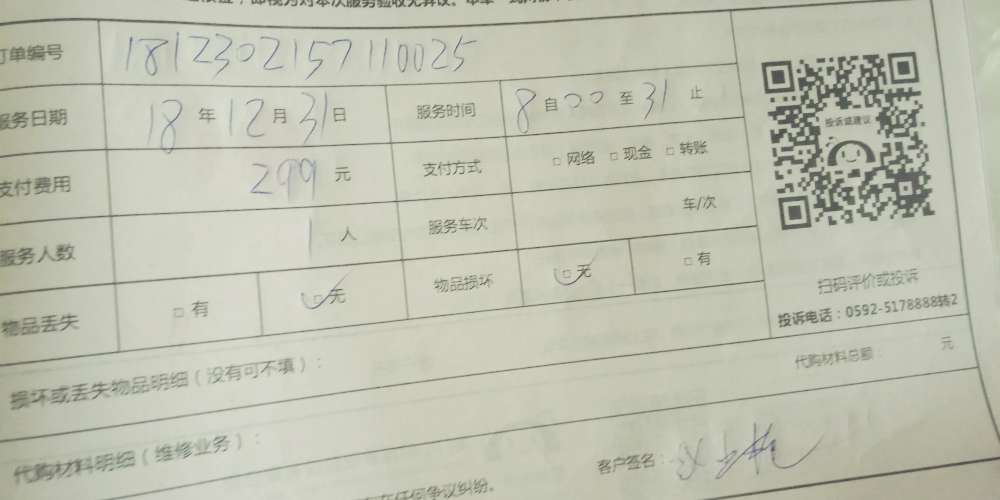 即视为对本次服务验收无异议。
订单编号 1812302157110025
服务日期 18年12月31日 服务时间 8自00至31止
支付费用 299元 支付方式 □网络 □现金 □转账
服务人数 1人 服务车次 车/次
物品丢失 □有 □无 物品损坏 □无 □有
投诉或建议
扫码评价或投诉
投诉电话：0592-5178888转2
损坏或丢失物品明细（没有可不填）：
代购材料总额： 元
代购材料明细（维修业务）：
客户签名：
任何争议纠纷。